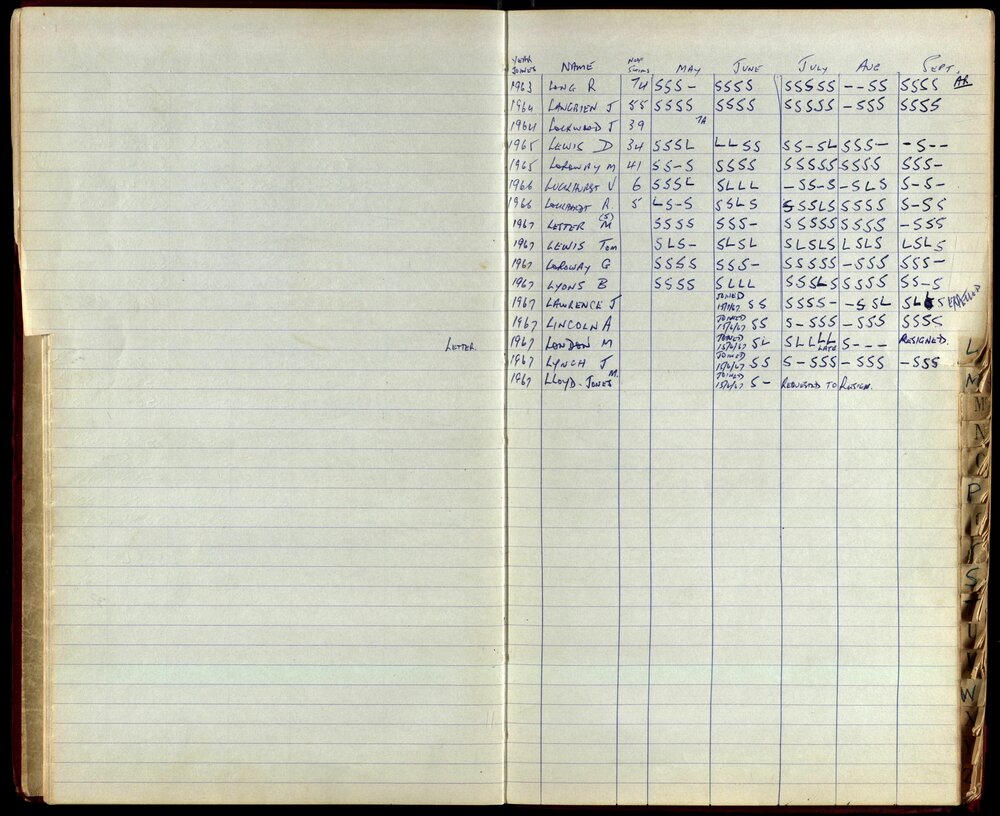 YEAR JOINED NAME NO OF SWIMS MAY JUNE JULY AUG SEPT.
1963 LONG R 74 SSS- SSSS SSSSS --SS SSSS AR
1964 LANGRIEN J 55 SSSS SSSS SSSSS -SSS SSSS
1964 LOCKWOOD J 39 TA
1965 LEWIS D 34 SSSL LLSS SS-SL SSS- -S--
1965 LOROWAY M 41 SS-S SSSS SSSSS SSSS SSS-
1966 LUCKHURST V 6 SSSL SLLL -SS-S -SLS S-S-
1966 LOCKHARDT A. 5 LS-S SSLS SSSLS SSSS S-SS
1967 LETTER (S) M SSSS SSS- SSSSS SSSS -SSS
1967 LEWIS TOM SLS- SLSL SLSLS LSLS LSLS
1967 LOROWAY G SSSS SSS- SSSSS -SSS SSS-
1967 LYONS B SSSS SLLL SSSLS SSSS SS-S
1967 LAWRENCE J JOINED SS SSSS- -SSL SL S EXPELLED
1967 LINCOLN A JOINED 15/6/67 SS S-SSS -SSS SSSS
LETTER. 1967 LONDON M JOINED 15/6/67 SL SLLLL LATE S--- RESIGNED.
1967 LYNCH J JOINED 15/6/67 SS S-SSS -SSS -SSS
1967 LLOYD-JONES M. JOINED 15/6/67 S- REQUESTED TO RESIGN.
L
M
M
N
O
P
S
T
U
V
W
Y